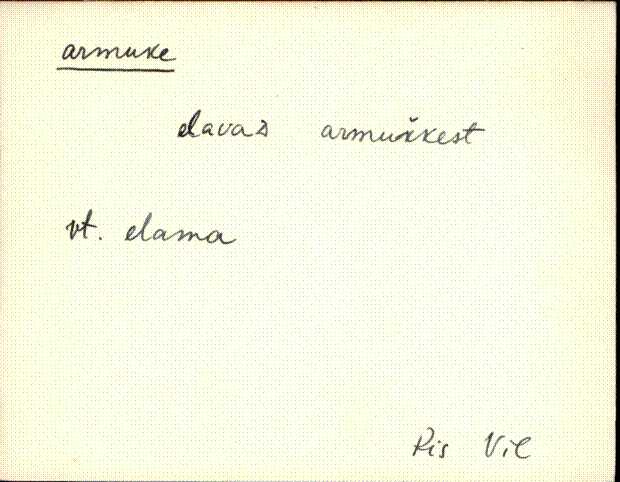 armuke
elavad armukkest
vt. elama
Ris Vil